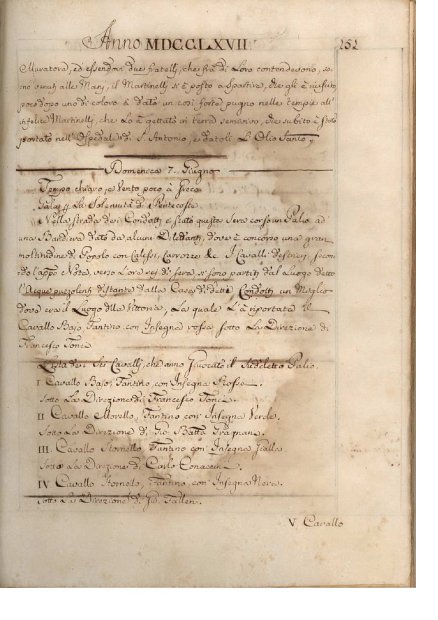 Anno MDCCLXVII
252
Muratora, ed essendovi due fratelli, che frà di Loro contendevono, so-
no venuti alle Mani, il Martinelli si è posto a Spartire, che gli è riuscito
poco dopo uno di coloro à dato un così forte pugno nelle tempie all'
infelice Martinelli, che Lo à gettato in terra semivivo, che subito è stato
portato nell' Ospedal di S. Antonio, e datoli L'Olio Santo
Domenica 7. Giugno
Tempo chiaro, e Vento poco à Greco
La Solennità di Pentecoste
Nella strada dei Condotti è stato questa sera corso un Palio ad
una Bandiera dato da alcuni Dilettanti, dove è concorso una gran
moltitudine di Popolo con Calessi, Carrozze &c. I Cavalli descritti, secon-
do l'appo Nota, verso L'ore di sera si sono partiti dal Luogo detto
l'Acque puzolenti distante dalla Casa di detti Condotti un Miglio
dove era il Luogo della Vittoria, La quale L'à riportata il
Cavallo Bajo, Fantino con Insegna rossa sotto La Direzione di
Francesco Tonci
Lista dei Cavalli, che anno Giuocato il Sudetto Palio.
I Cavallo Bajo, Fantino, con Insegna Rossa.
Sotto La Direzione di Francesco Tonci.
II Cavallo Morello, Fantino con Insegna Verde.
Sotto La Direzione di Gio. Batta
III. Cavallo Stornello, Fantino con Insegna Gialla
Sotto La Direzione di Carlo
IV Cavallo Stornello, Fantino, con Insegna Nera.
Sotto La Direzione di Gio.
V. Cavallo